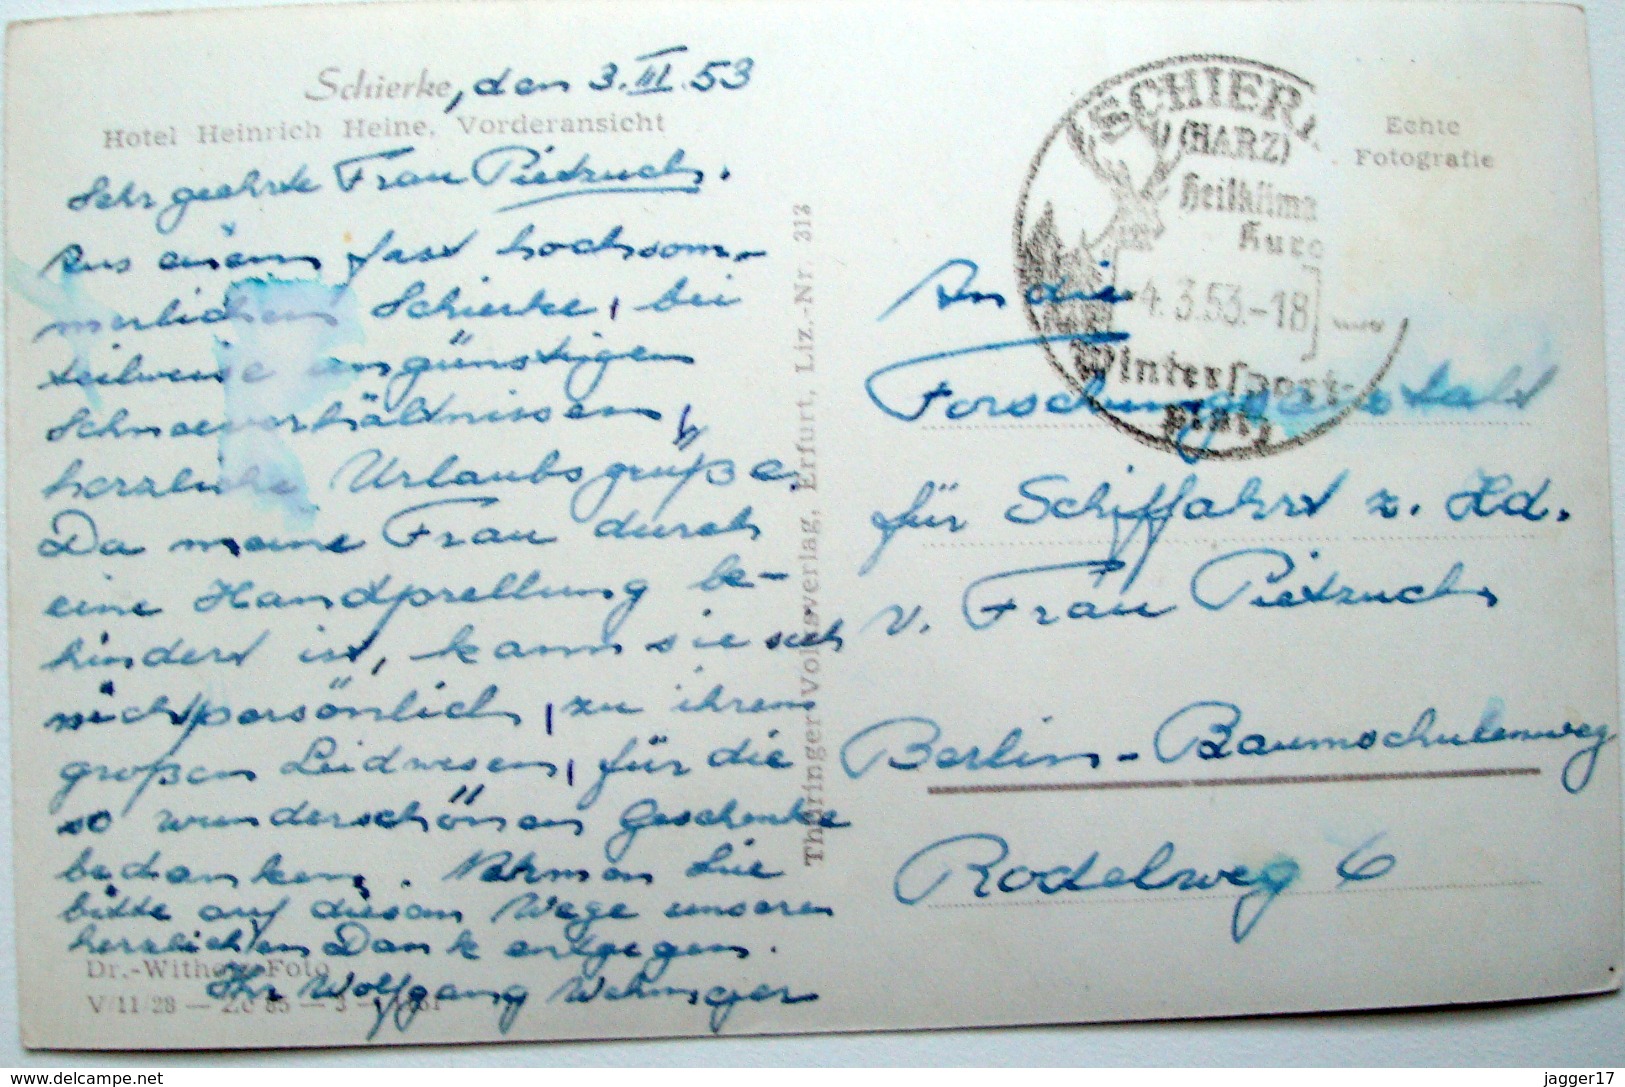 Schierke, den 3.III.53
Hotel Heinrich Heine, Vorderansicht
Sehr geehrte Frau Pietruch.
Aus einem fast hochsom-
merlichen Schierke, bei
teilweise ungünstigen
Schneeverhältnissen,
herzliche Urlaubsgrüße.
Da meine Frau durch
eine Handprellung be-
hindert ist, kann sie sich
nicht persönlich, zu ihrem
großen Leidwesen, für die
so wunderschönen Geschenke
bedanken. Nehmen Sie
bitte auf diesem Wege unseren
herzlichen Dank entgegen.
Ihr Wolfgang
Dr.-
V/11/28
Thüringer Volksverlag, Erfurt, Liz.-Nr. 313
SCHIER
(HARZ)
Heilklima
Kuro
-4.3.53.-18
Wintersport-
platz
Echte
Fotografie
An die
Forschungsanstalt
für Schiffahrt z. Hd.
v. Frau Pietruch
Berlin-Baumschulenweg
Rodelweg 6
www.delcampe.net
jagger17